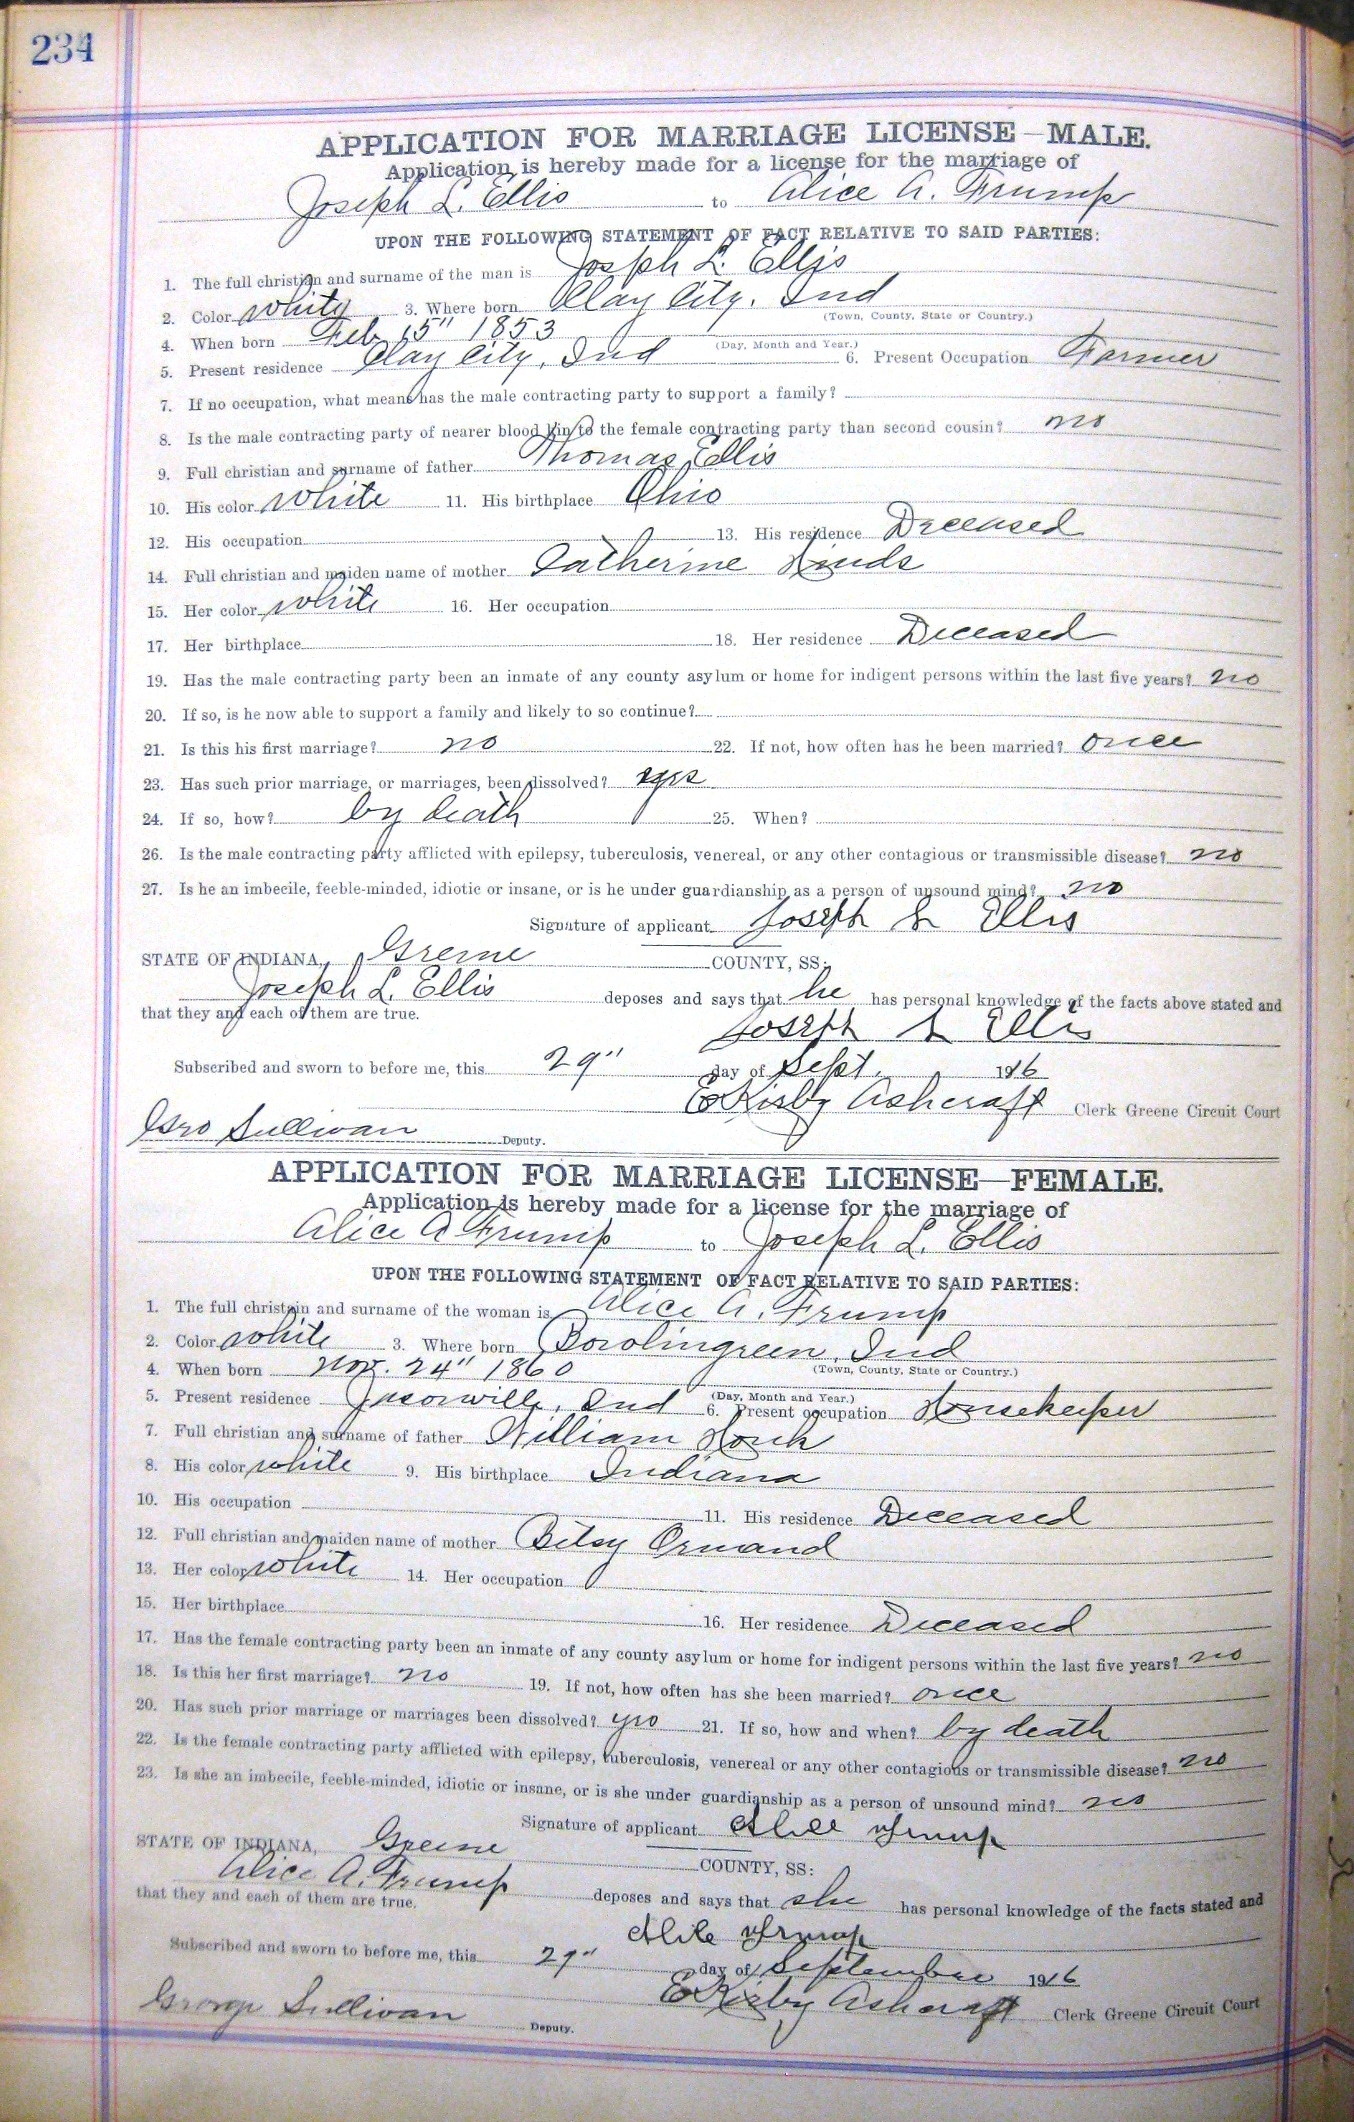 234
APPLICATION FOR MARRIAGE LICENSE—MALE.
Application is hereby made for a license for the marriage of
Joseph L. Ellis to Alice A. Frump
UPON THE FOLLOWING STATEMENT OF FACT RELATIVE TO SAID PARTIES:
1. The full christian and surname of the man is Joseph L. Ellis
2. Color white 3. Where born Clay City, Ind
(Town, County, State or Country.)
4. When born Feb 15" 1853
(Day, Month and Year.)
5. Present residence Clay City, Ind 6. Present Occupation Farmer
7. If no occupation, what means has the male contracting party to support a family?
8. Is the male contracting party of nearer blood kin to the female contracting party than second cousin? no
9. Full christian and surname of father Thomas Ellis
10. His color white 11. His birthplace Ohio
12. His occupation 13. His residence Deceased
14. Full christian and maiden name of mother Catherine Hinds
15. Her color white 16. Her occupation
17. Her birthplace 18. Her residence Deceased
19. Has the male contracting party been an inmate of any county asylum or home for indigent persons within the last five years? no
20. If so, is he now able to support a family and likely to so continue?
21. Is this his first marriage? no 22. If not, how often has he been married? once
23. Has such prior marriage, or marriages, been dissolved? yes
24. If so, how? by death 25. When?
26. Is the male contracting party afflicted with epilepsy, tuberculosis, venereal, or any other contagious or transmissible disease? no
27. Is he an imbecile, feeble-minded, idiotic or insane, or is he under guardianship as a person of unsound mind? no
Signature of applicant Joseph L Ellis
STATE OF INDIANA, Greene COUNTY, SS:
Joseph L. Ellis deposes and says that he has personal knowledge of the facts above stated and
that they and each of them are true.
Joseph L Ellis
Subscribed and sworn to before me, this 29" day of Sept. 1916
E Kirby Ashcraft Clerk Greene Circuit Court
Geo Sullivan Deputy.
APPLICATION FOR MARRIAGE LICENSE—FEMALE.
Application is hereby made for a license for the marriage of
Alice A Frump to Joseph L. Ellis
UPON THE FOLLOWING STATEMENT OF FACT RELATIVE TO SAID PARTIES:
1. The full christain and surname of the woman is Alice A. Frump
2. Color white 3. Where born Bowlingreen, Ind
(Town, County, State or Country.)
4. When born Nov. 24" 1860
(Day, Month and Year.)
5. Present residence Jasonville, Ind 6. Present occupation Housekeeper
7. Full christian and surname of father William
8. His color white 9. His birthplace Indiana
10. His occupation 11. His residence Deceased
12. Full christian and maiden name of mother Betsy Ormand
13. Her color white 14. Her occupation
15. Her birthplace 16. Her residence Deceased
17. Has the female contracting party been an inmate of any county asylum or home for indigent persons within the last five years? no
18. Is this her first marriage? no 19. If not, how often has she been married? once
20. Has such prior marriage or marriages been dissolved? yes 21. If so, how and when? by death
22. Is the female contracting party afflicted with epilepsy, tuberculosis, venereal or any other contagious or transmissible disease? no
23. Is she an imbecile, feeble-minded, idiotic or insane, or is she under guardianship as a person of unsound mind? no
Signature of applicant Alice Frump
STATE OF INDIANA, Greene COUNTY, SS:
Alice A. Frump deposes and says that she has personal knowledge of the facts stated and
that they and each of them are true.
Alice Frump
Subscribed and sworn to before me, this 29" day of September 1916
E Kirby Ashcraft Clerk Greene Circuit Court
George Sullivan Deputy.